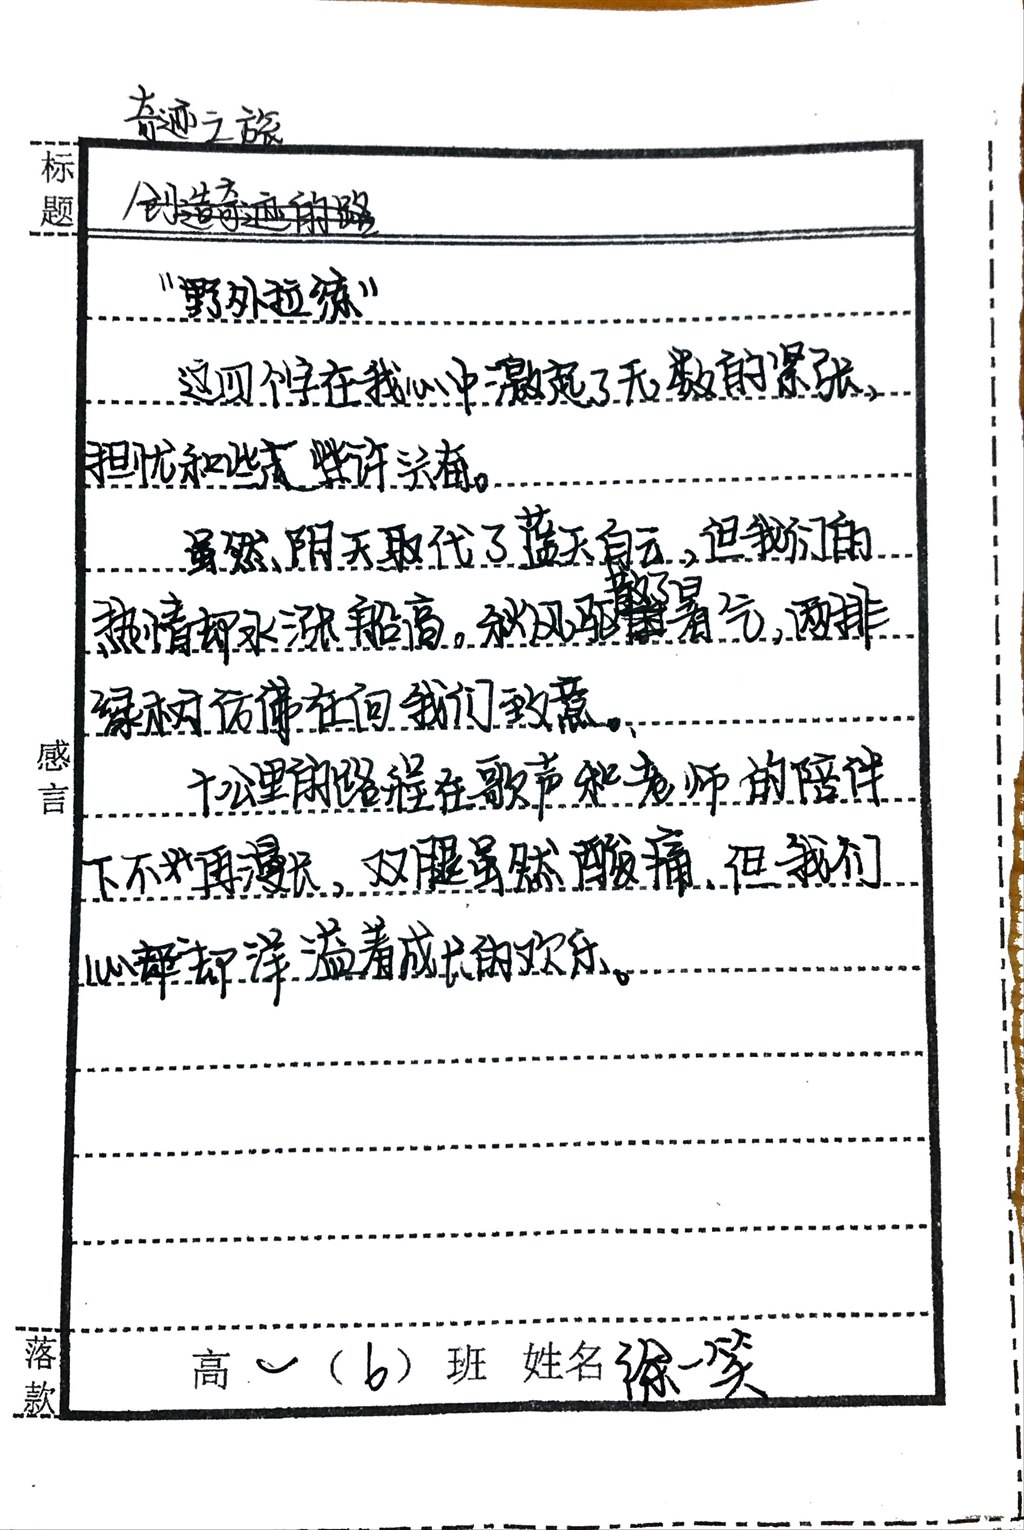 奇迹之旅
标题
创造奇迹的路
"野外拉练"
这四个字在我心中激起了无数的紧张、
担忧和些许兴奋。
虽然阴天取代了蓝天白云,但我们的
热情却水涨船高。秋风驱散了暑气,两排
绿树仿佛在向我们致意。
感言
十公里的路程在歌声和老师的陪伴
下不再漫长,双腿虽然酸痛、但我们
心却洋溢着成长的欢乐。
落款
高一(6)班 姓名徐一笑